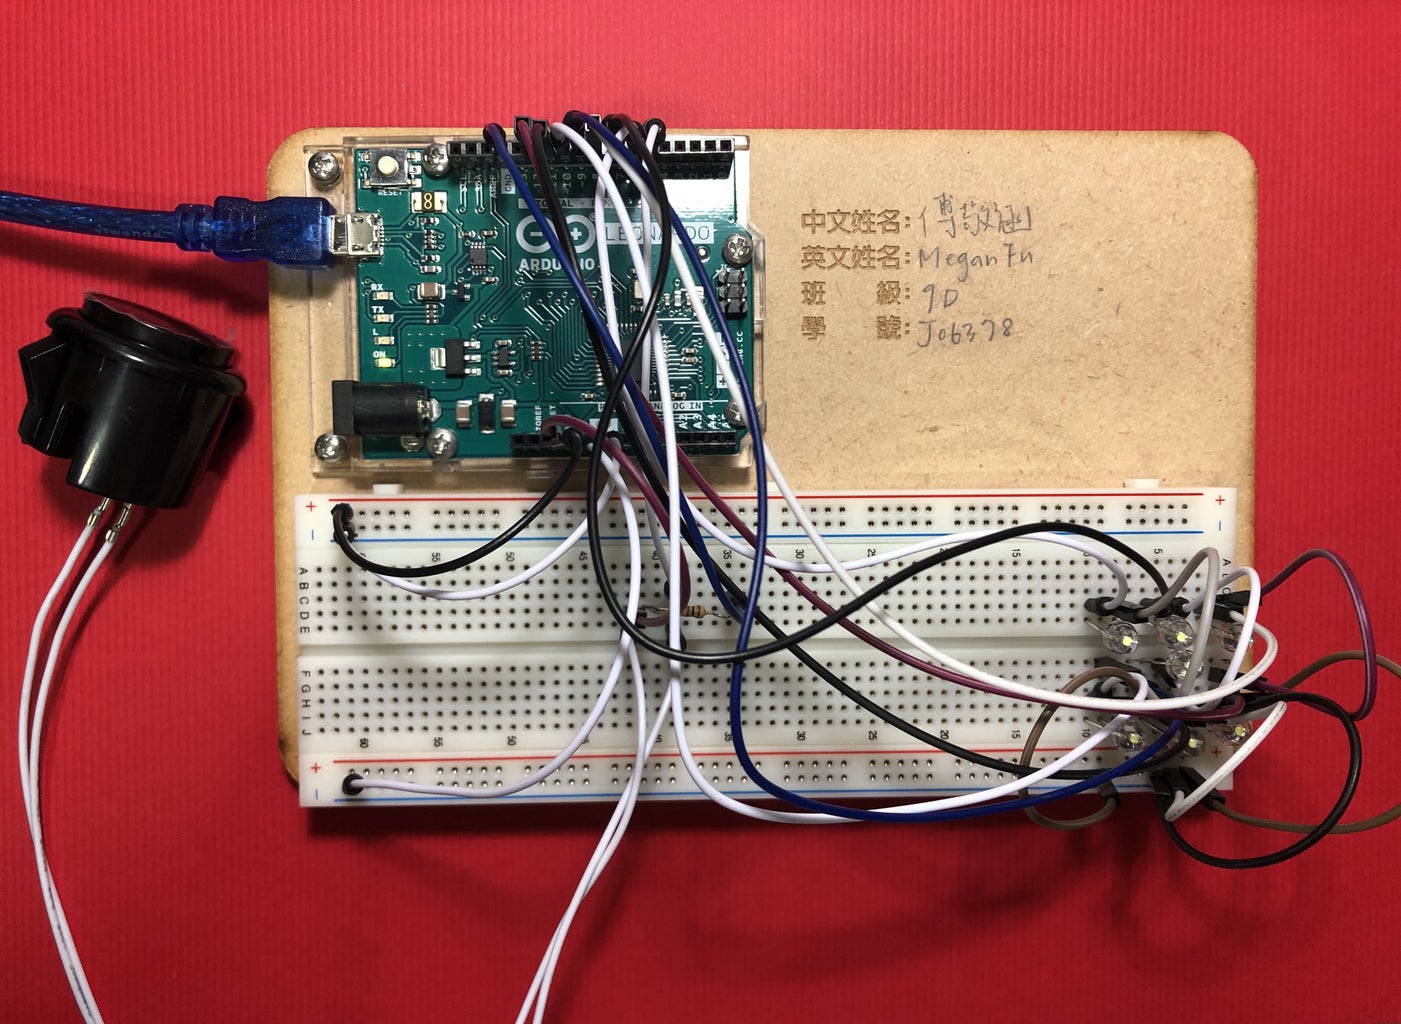 中文姓名: 傅敬涵
英文姓名: Megan Fu
班 級: 9D
學 號: J06378
RESET
RX
TX
L
ON
LEONARDO
ARDUINO
GND
IOREF
ANALOG IN
A2
A3
A4
+ + 
- -
55 50 45 40 35 30 25 20 15 5
A
B
C
D
E
F
G
H
I
J
60 55 50 45 35 30 25 20 15 10
+ +
-